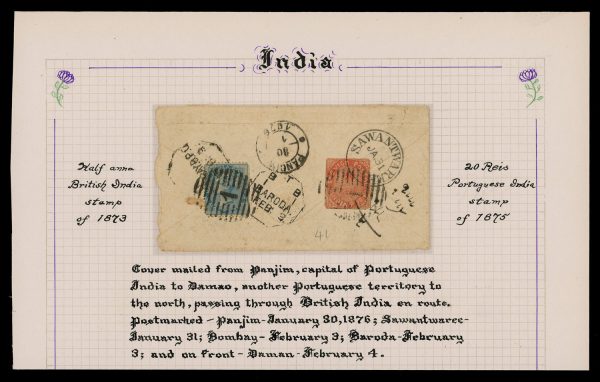 India
Half anna
British India
stamp
of 1873
20 Reis
Portuguese India
stamp
of 1875
1876
SAWANTWAR
JA 31
1
B
T B
BARODA
FEB 3
41
Cover mailed from Panjim, capital of Portuguese
India to Damao, another Portuguese territory to
the north, passing through British India en route.
Postmarked - Panjim - January 30, 1876; Sawantwaree -
January 31; Bombay - February 3; Baroda - February
3; and on front - Daman - February 4.